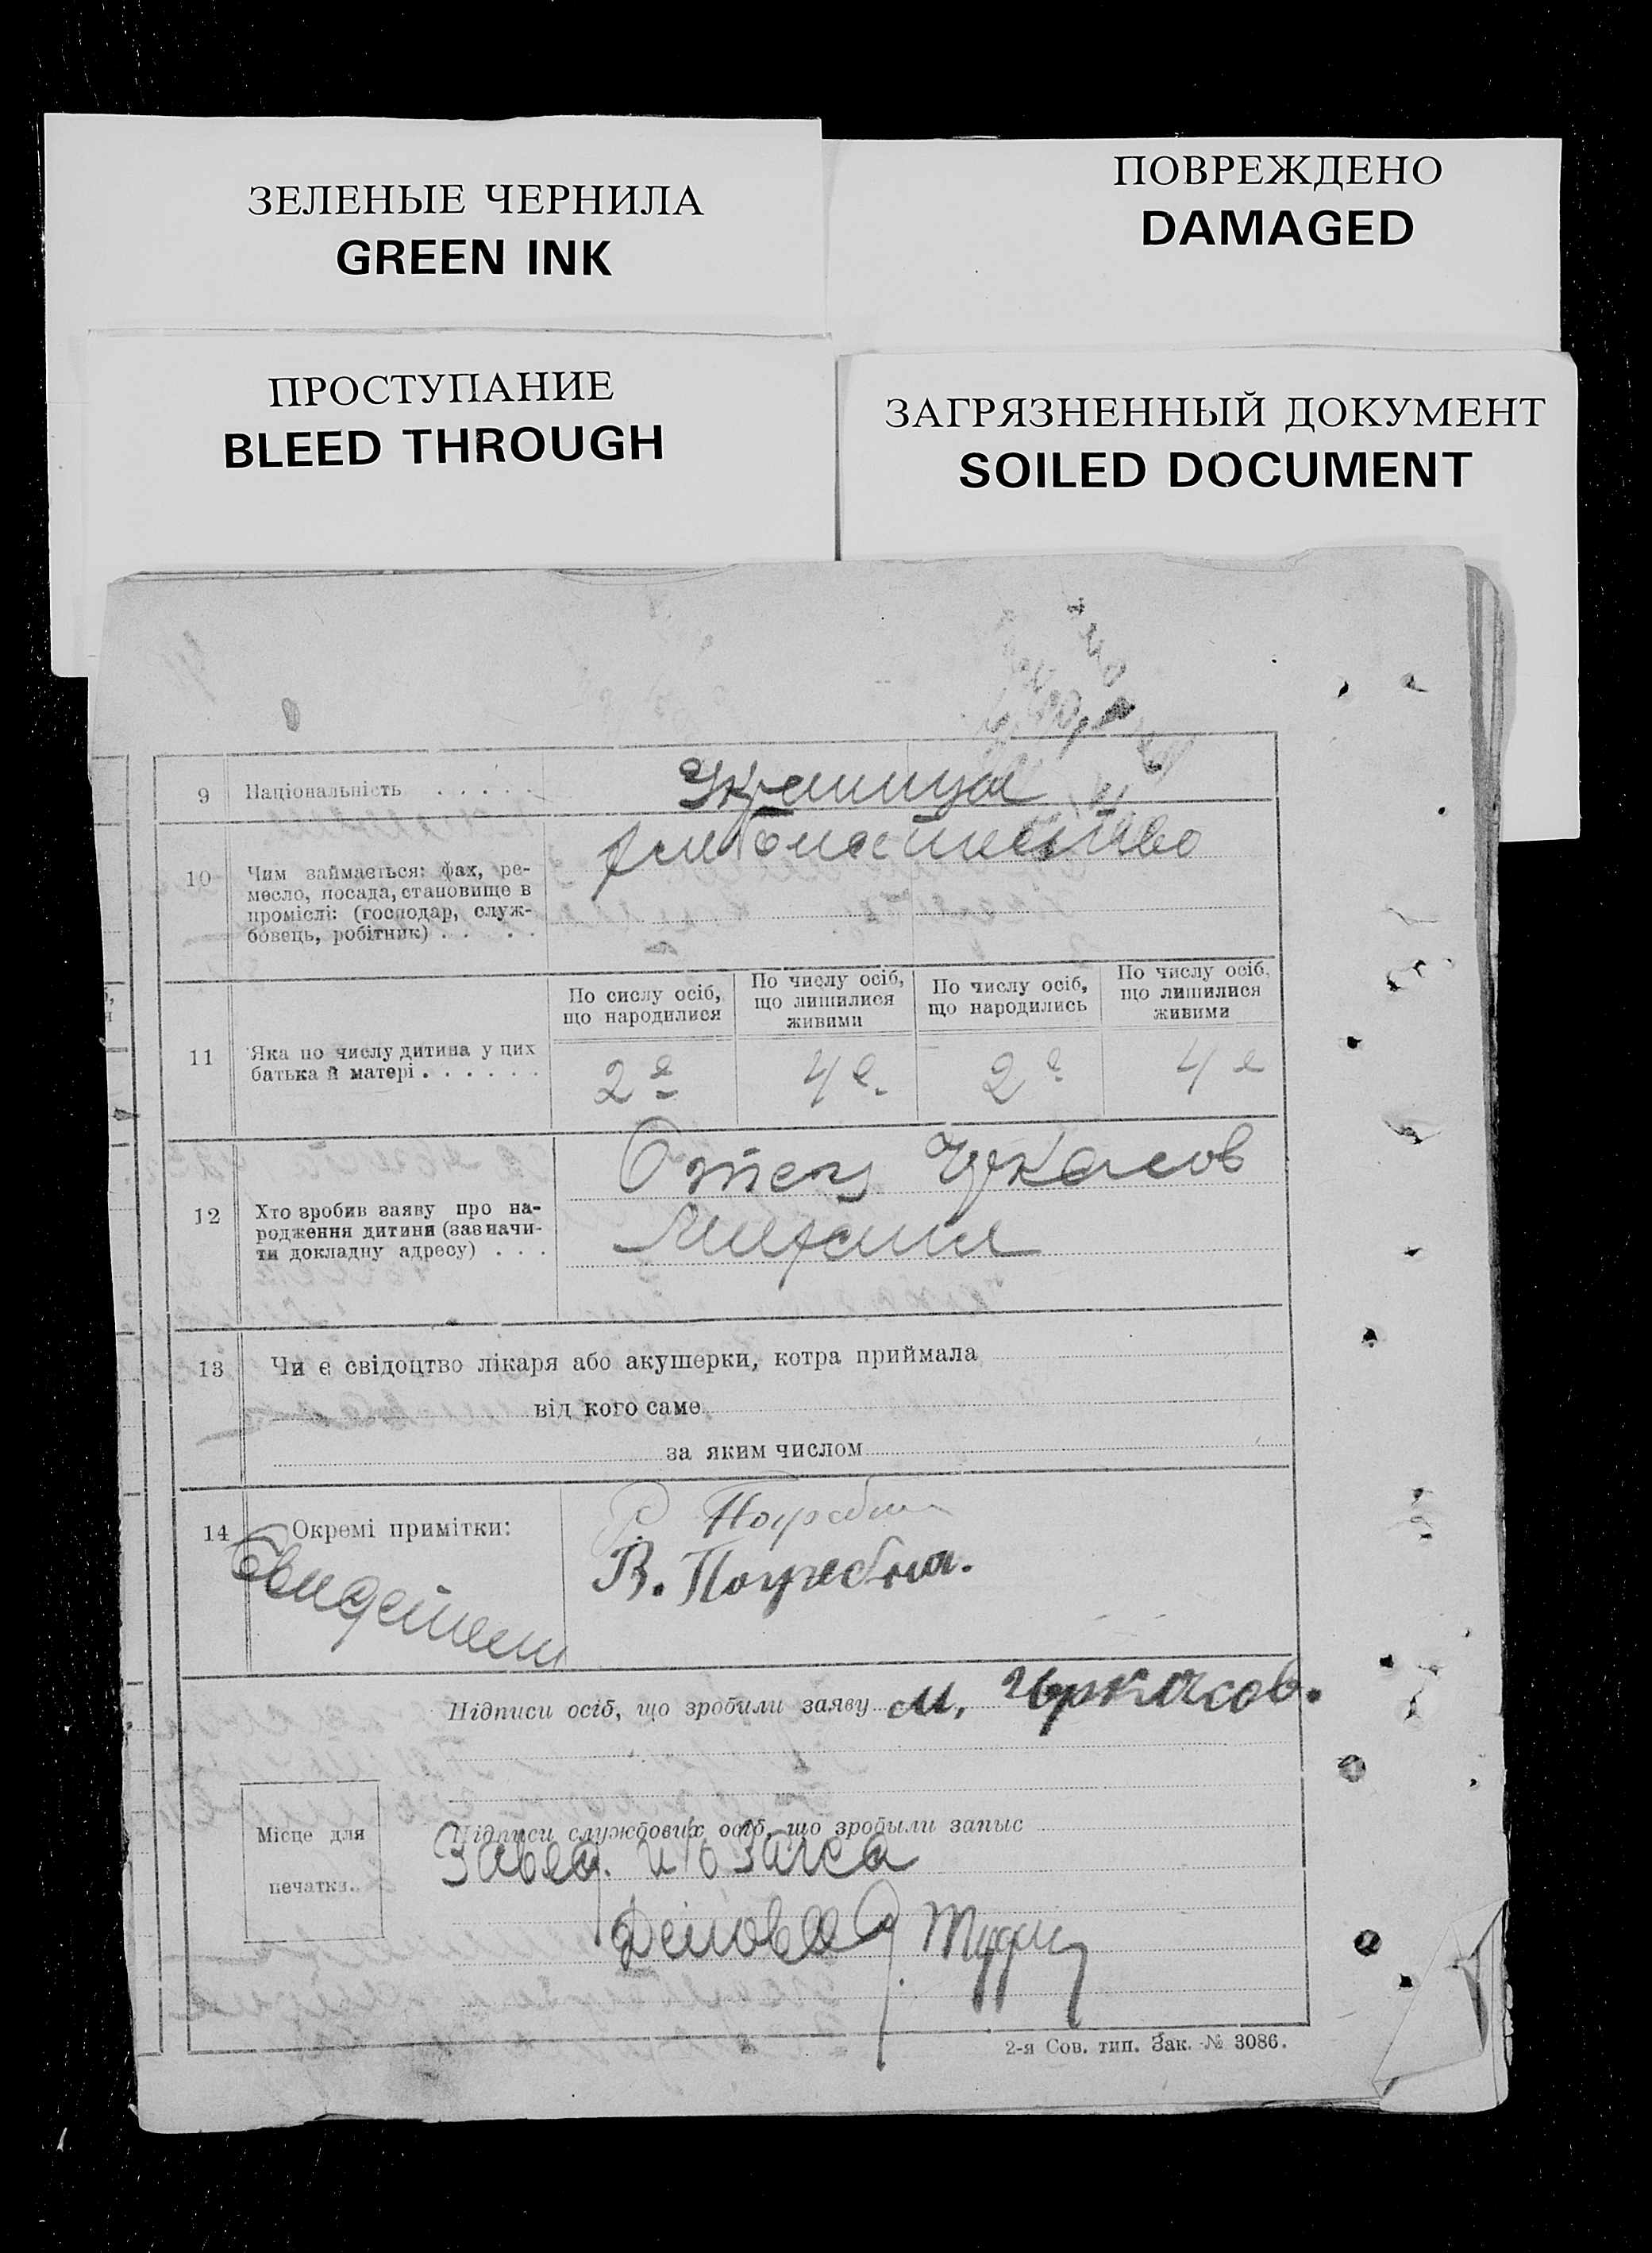 ЗЕЛЕНЫЕ ЧЕРНИЛА
GREEN INK
ПОВРЕЖДЕНО
DAMAGED
ПРОСТУПАНИЕ
BLEED THROUGH
ЗАГРЯЗНЕННЫЙ ДОКУМЕНТ
SOILED DOCUMENT
9 Національність . . . . .
10 Чим займається: фах, ре-
месло, посада, становище в
проміслі: (господар, служ-
бовець, робітник) . . . .
хлебопашество
11 Яка по числу дитина у цих
батька й матері . . . . . .
По сислу осіб,
що народилися
По числу осіб,
що лишилися
живими
По числу осіб,
що народились
По числу осіб,
що лишилися
живими
2е 4е. 2е 4е
12 Хто зробив заяву про на-
родження дитини (зазначи-
ти докладну адресу) . . .
Отец
Михаил
13 Чи є свідоцтво лікаря або акушерки, котра приймала
від кого саме
за яким числом
14 Окремі примітки:
Свидетели
В. Погребная.
Підписи осіб, що зробили заяву М.
Місце для
печатки.
Підписи службових осіб, що зробыли запыс
Завед. загса
2-я Сов. тип. Зак. № 3086.